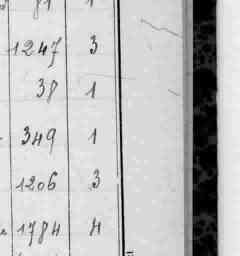 1247 3
38 1
349 1
1206 3
1784 4